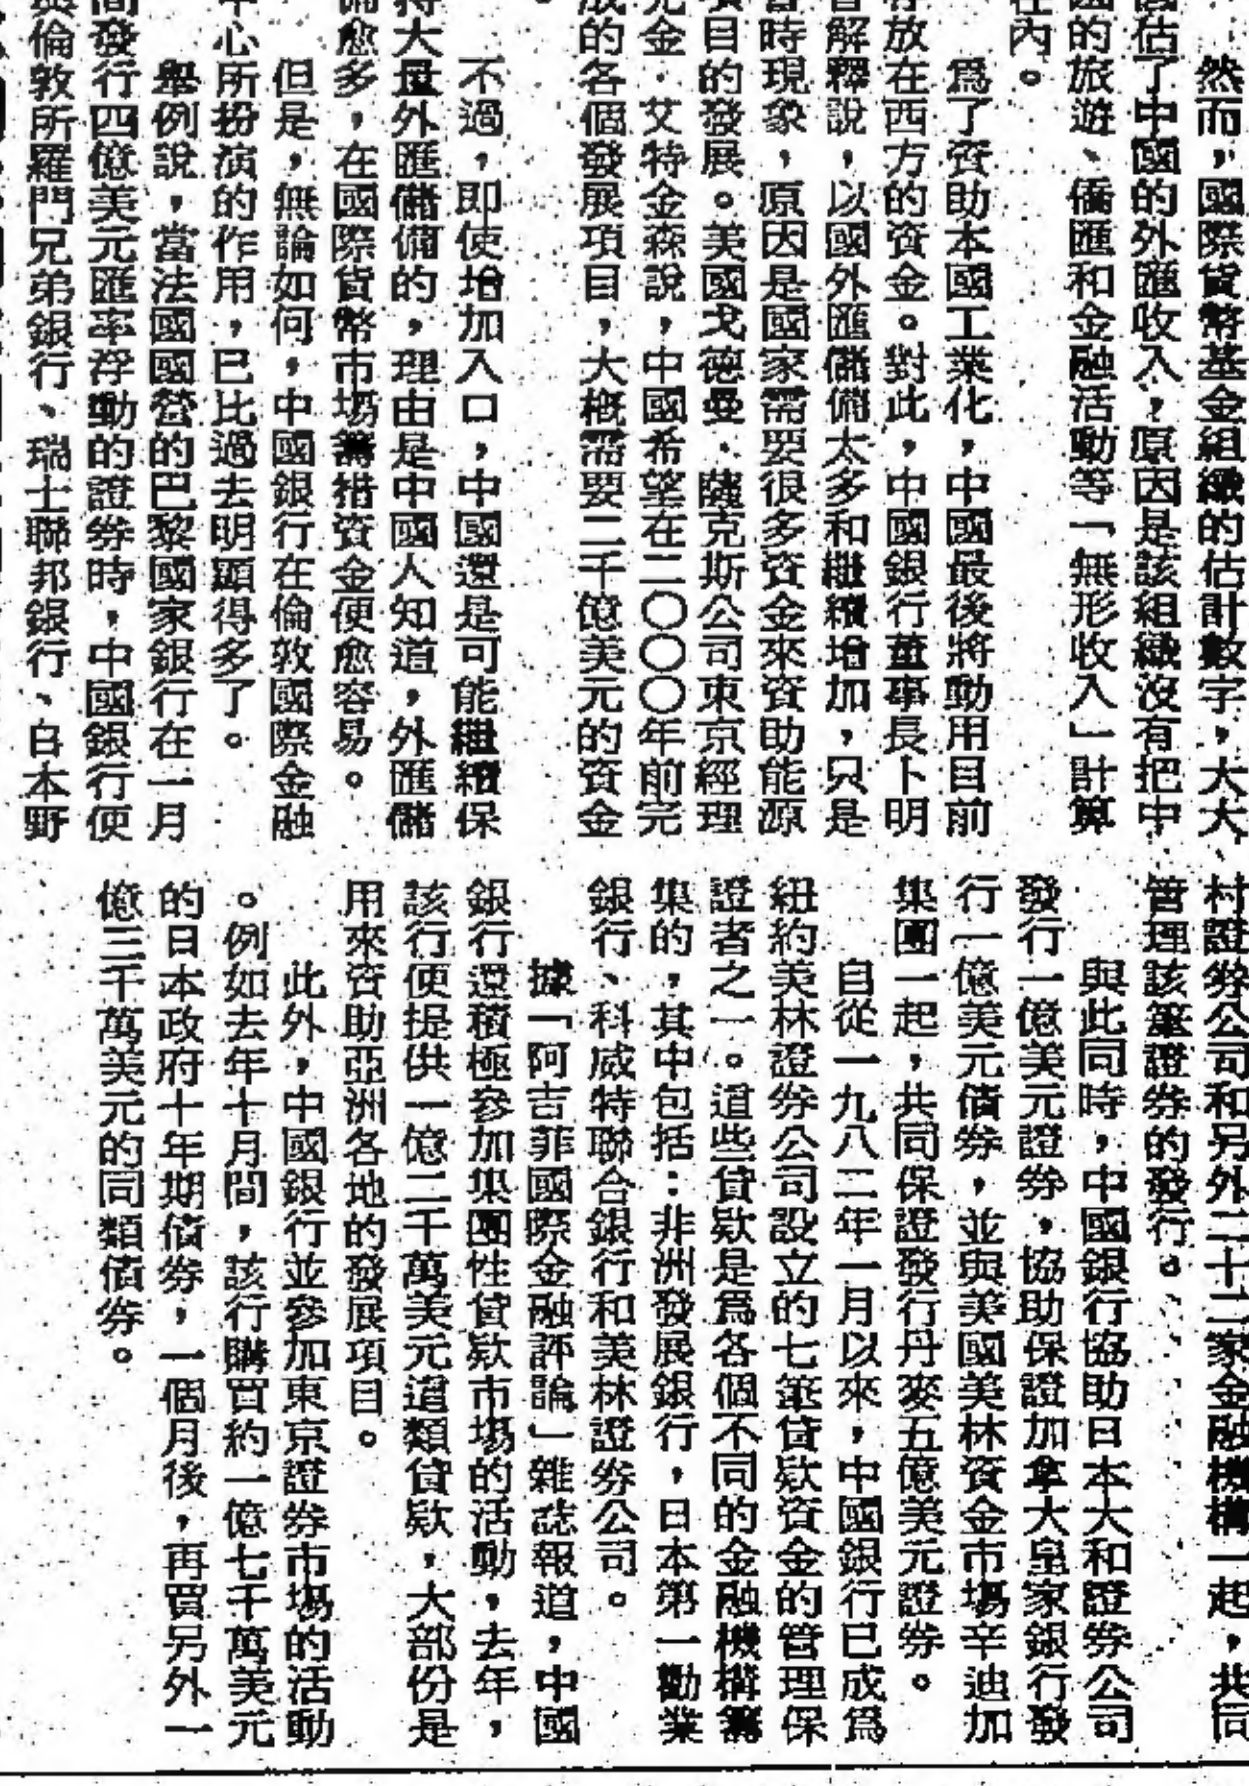 然而，國際貨幣基金組織的估計數字，大大
估了中國的外匯收入，原因是該組織沒有把中
的旅遊、僑匯和金融活動等「無形收入」計算
在內。
爲了資助本國工業化，中國最後將動用目前
存放在西方的資金。對此，中國銀行董事長卜明
曾解釋說，以國外匯儲備太多和繼續增加，只是
暫時現象，原因是國家需要很多資金來資助能源
項目的發展。美國戈德曼．薩克斯公司東京經理
元金．艾特金森說，中國希望在二〇〇〇年前完
成的各個發展項目，大概需要二千億美元的資金
。
不過，即使增加入口，中國還是可能繼續保
持大量外匯儲備的，理由是中國人知道，外匯儲
備愈多，在國際貨幣市場籌措資金便愈容易。
但是，無論如何，中國銀行在倫敦國際金融
中心所扮演的作用，已比過去明顯得多了。
舉例說，當法國國營的巴黎國家銀行在一月
間發行四億美元匯率浮動的證券時，中國銀行便
與倫敦所羅門兄弟銀行、瑞士聯邦銀行、日本野
村證券公司和另外二十二家金融機構一起，共同
管理該筆證券的發行。
與此同時，中國銀行協助日本大和證券公司
發行一億美元證券，協助保證加拿大皇家銀行發
行一億美元債券，並與美國美林資金市場辛迪加
集團一起，共同保證發行丹麥五億美元證券。
自從一九八二年一月以來，中國銀行已成爲
紐約美林證券公司設立的七筆貸款資金的管理保
證者之一。這些貸款是爲各個不同的金融機構籌
集的，其中包括：非洲發展銀行，日本第一勸業
銀行、科威特聯合銀行和美林證券公司。
據「阿吉菲國際金融評論」雜誌報道，中國
銀行還積極參加集團性貸款市場的活動，去年，
該行便提供一億二千萬美元這類貸款，大部份是
用來資助亞洲各地的發展項目。
此外，中國銀行並參加東京證券市場的活動
。例如去年十月間，該行購買約一億七千萬美元
的日本政府十年期債券，一個月後，再買另外一
億三千萬美元的同類債券。